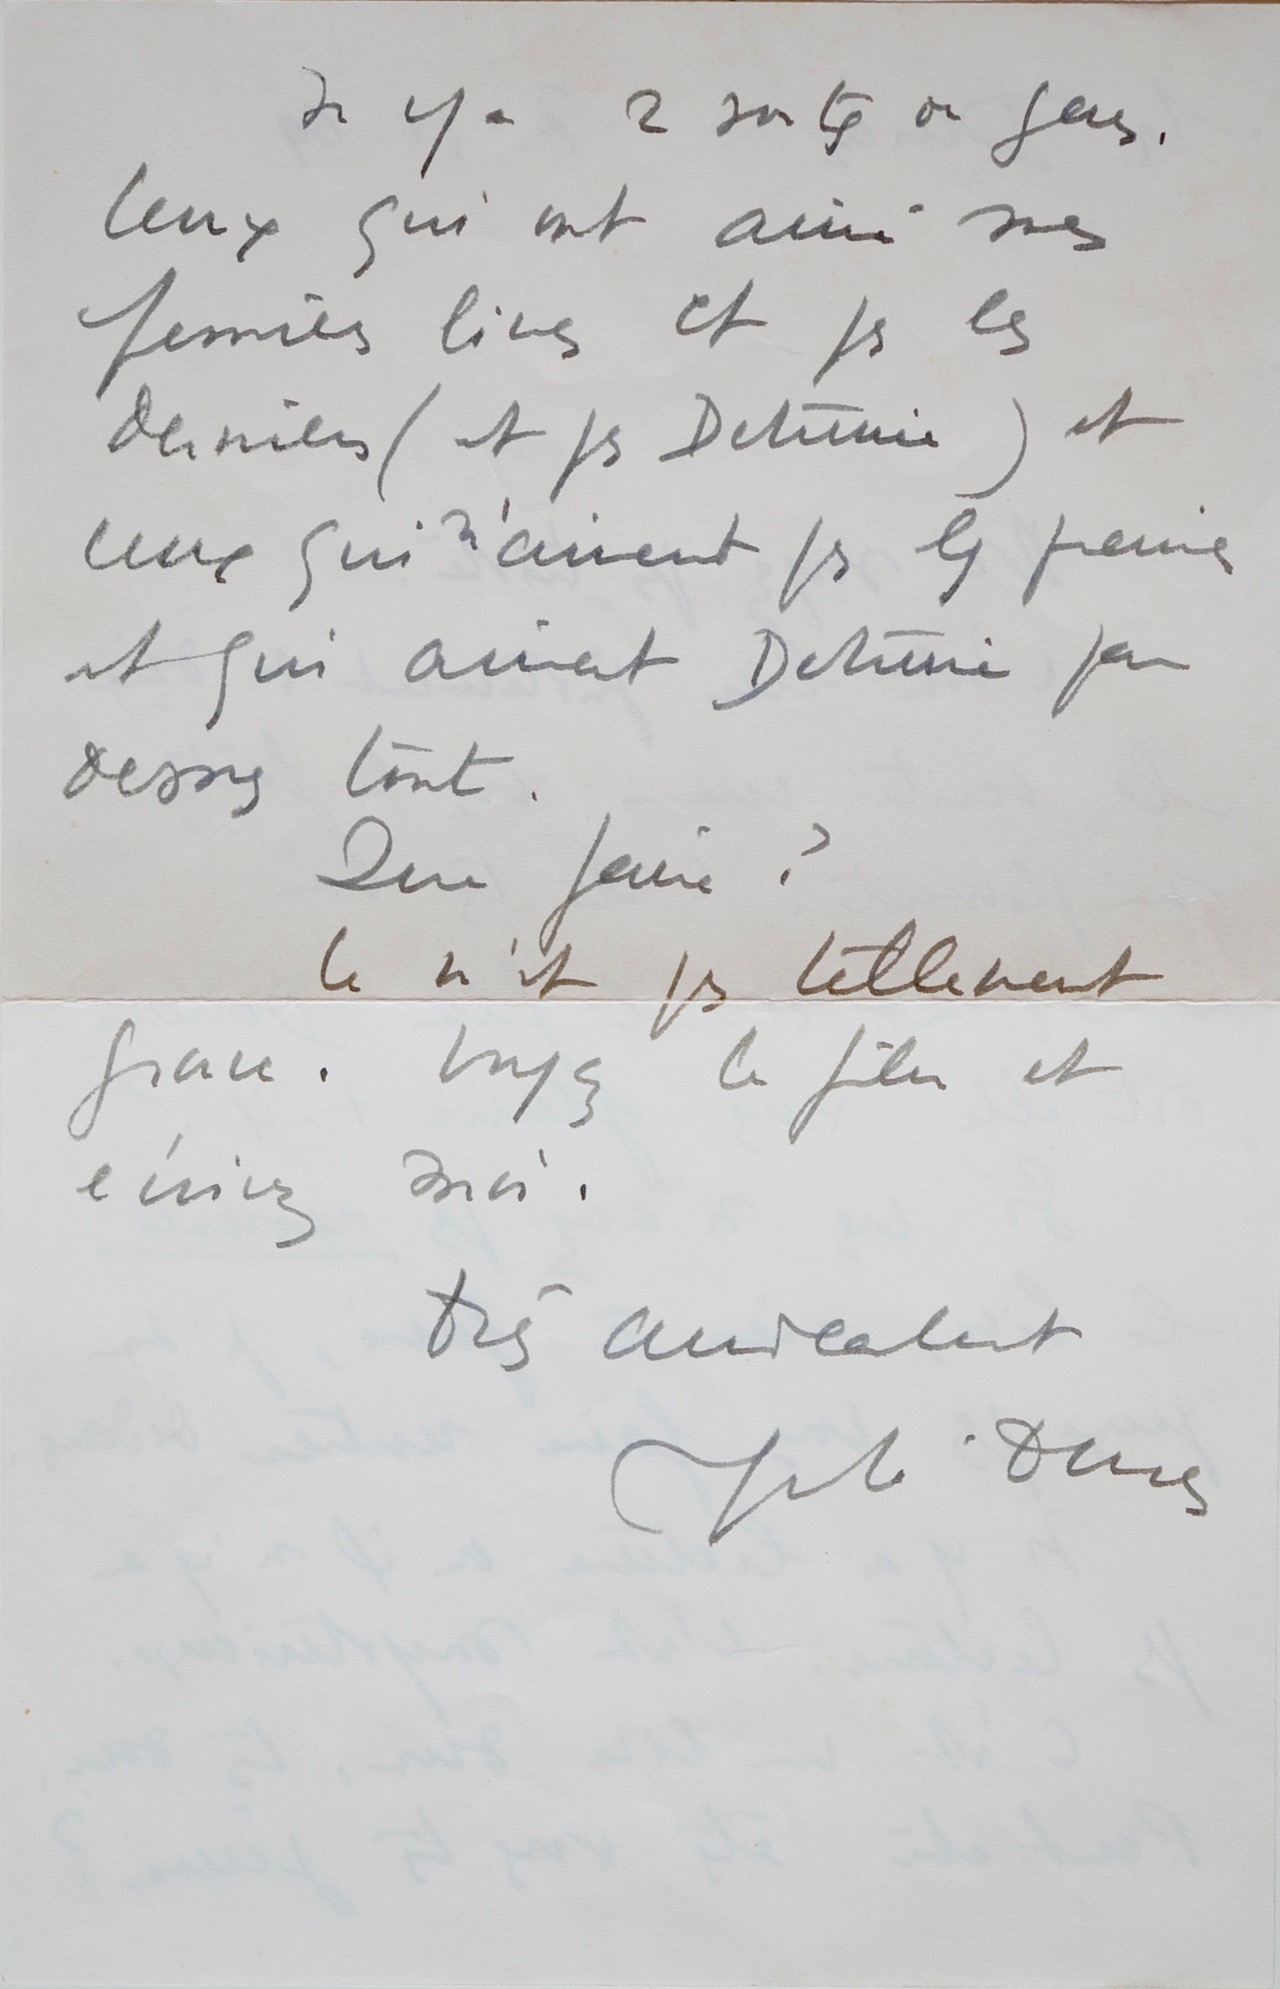 Il y a 2 sortes de gens.
Ceux qui ont aimé mes
premiers livres et pas les
derniers (et pas Détruire) et
ceux qui n'aiment pas les premiers
et qui aiment Détruire par
dessus tout.
Que faire ?
Ce n'est pas tellement
grave. Voyez le film et
écrivez moi.
Très amicalement
Duras